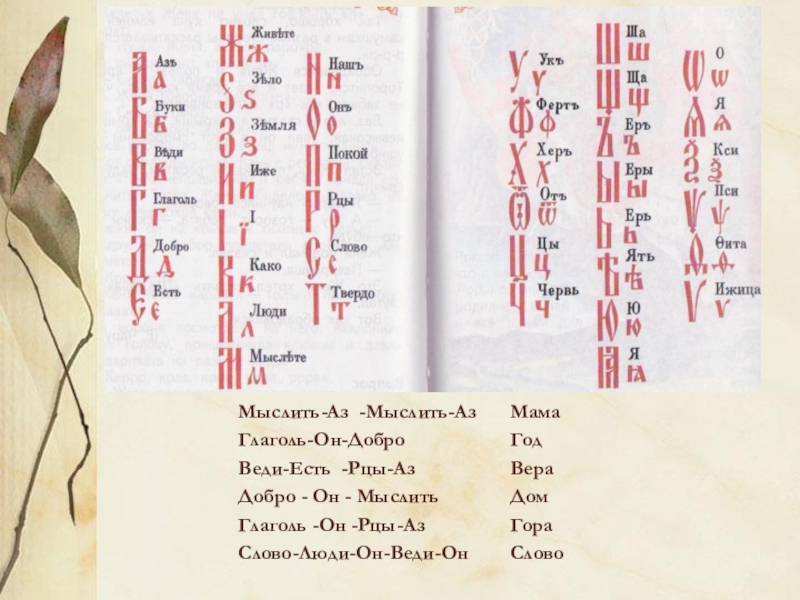 Азъ
А а
Буки
Б б
Вѣди
В в
Глаголь
Г г
Добро
Д д
Есть
Є є
Живѣте
Ж ж
Ѕѣло
Ѕ ѕ
Зѣмля
З з
Иже
И и
І
Ї ї
Како
К к
Люди
Л л
Мыслѣте
М м
Нашъ
Н н
Онъ
О о
Покой
П п
Рцы
Р р
Слово
С с
Твердо
Т т
Укъ
У у
Фертъ
Ф ф
Херъ
Х х
Отъ
Ѿ ѿ
Цы
Ц ц
Червь
Ч ч
Ша
Ш ш
Ща
Щ щ
Еръ
Ъ ъ
Еры
Ы ы
Ерь
Ь ь
Ять
Ѣ ѣ
Ю
Ю ю
Я
Ꙗ ꙗ
О
Ѡ ѡ
Я
Ѧ ѧ
Кси
Ѯ ѯ
Пси
Ѱ ѱ
Ѳита
Ѳ ѳ
Ижица
Ѵ ѵ
Мыслить-Аз -Мыслить-Аз Мама
Глаголь-Он-Добро Год
Веди-Есть -Рцы-Аз Вера
Добро - Он - Мыслить Дом
Глаголь -Он -Рцы-Аз Гора
Слово-Люди-Он-Веди-Он Слово